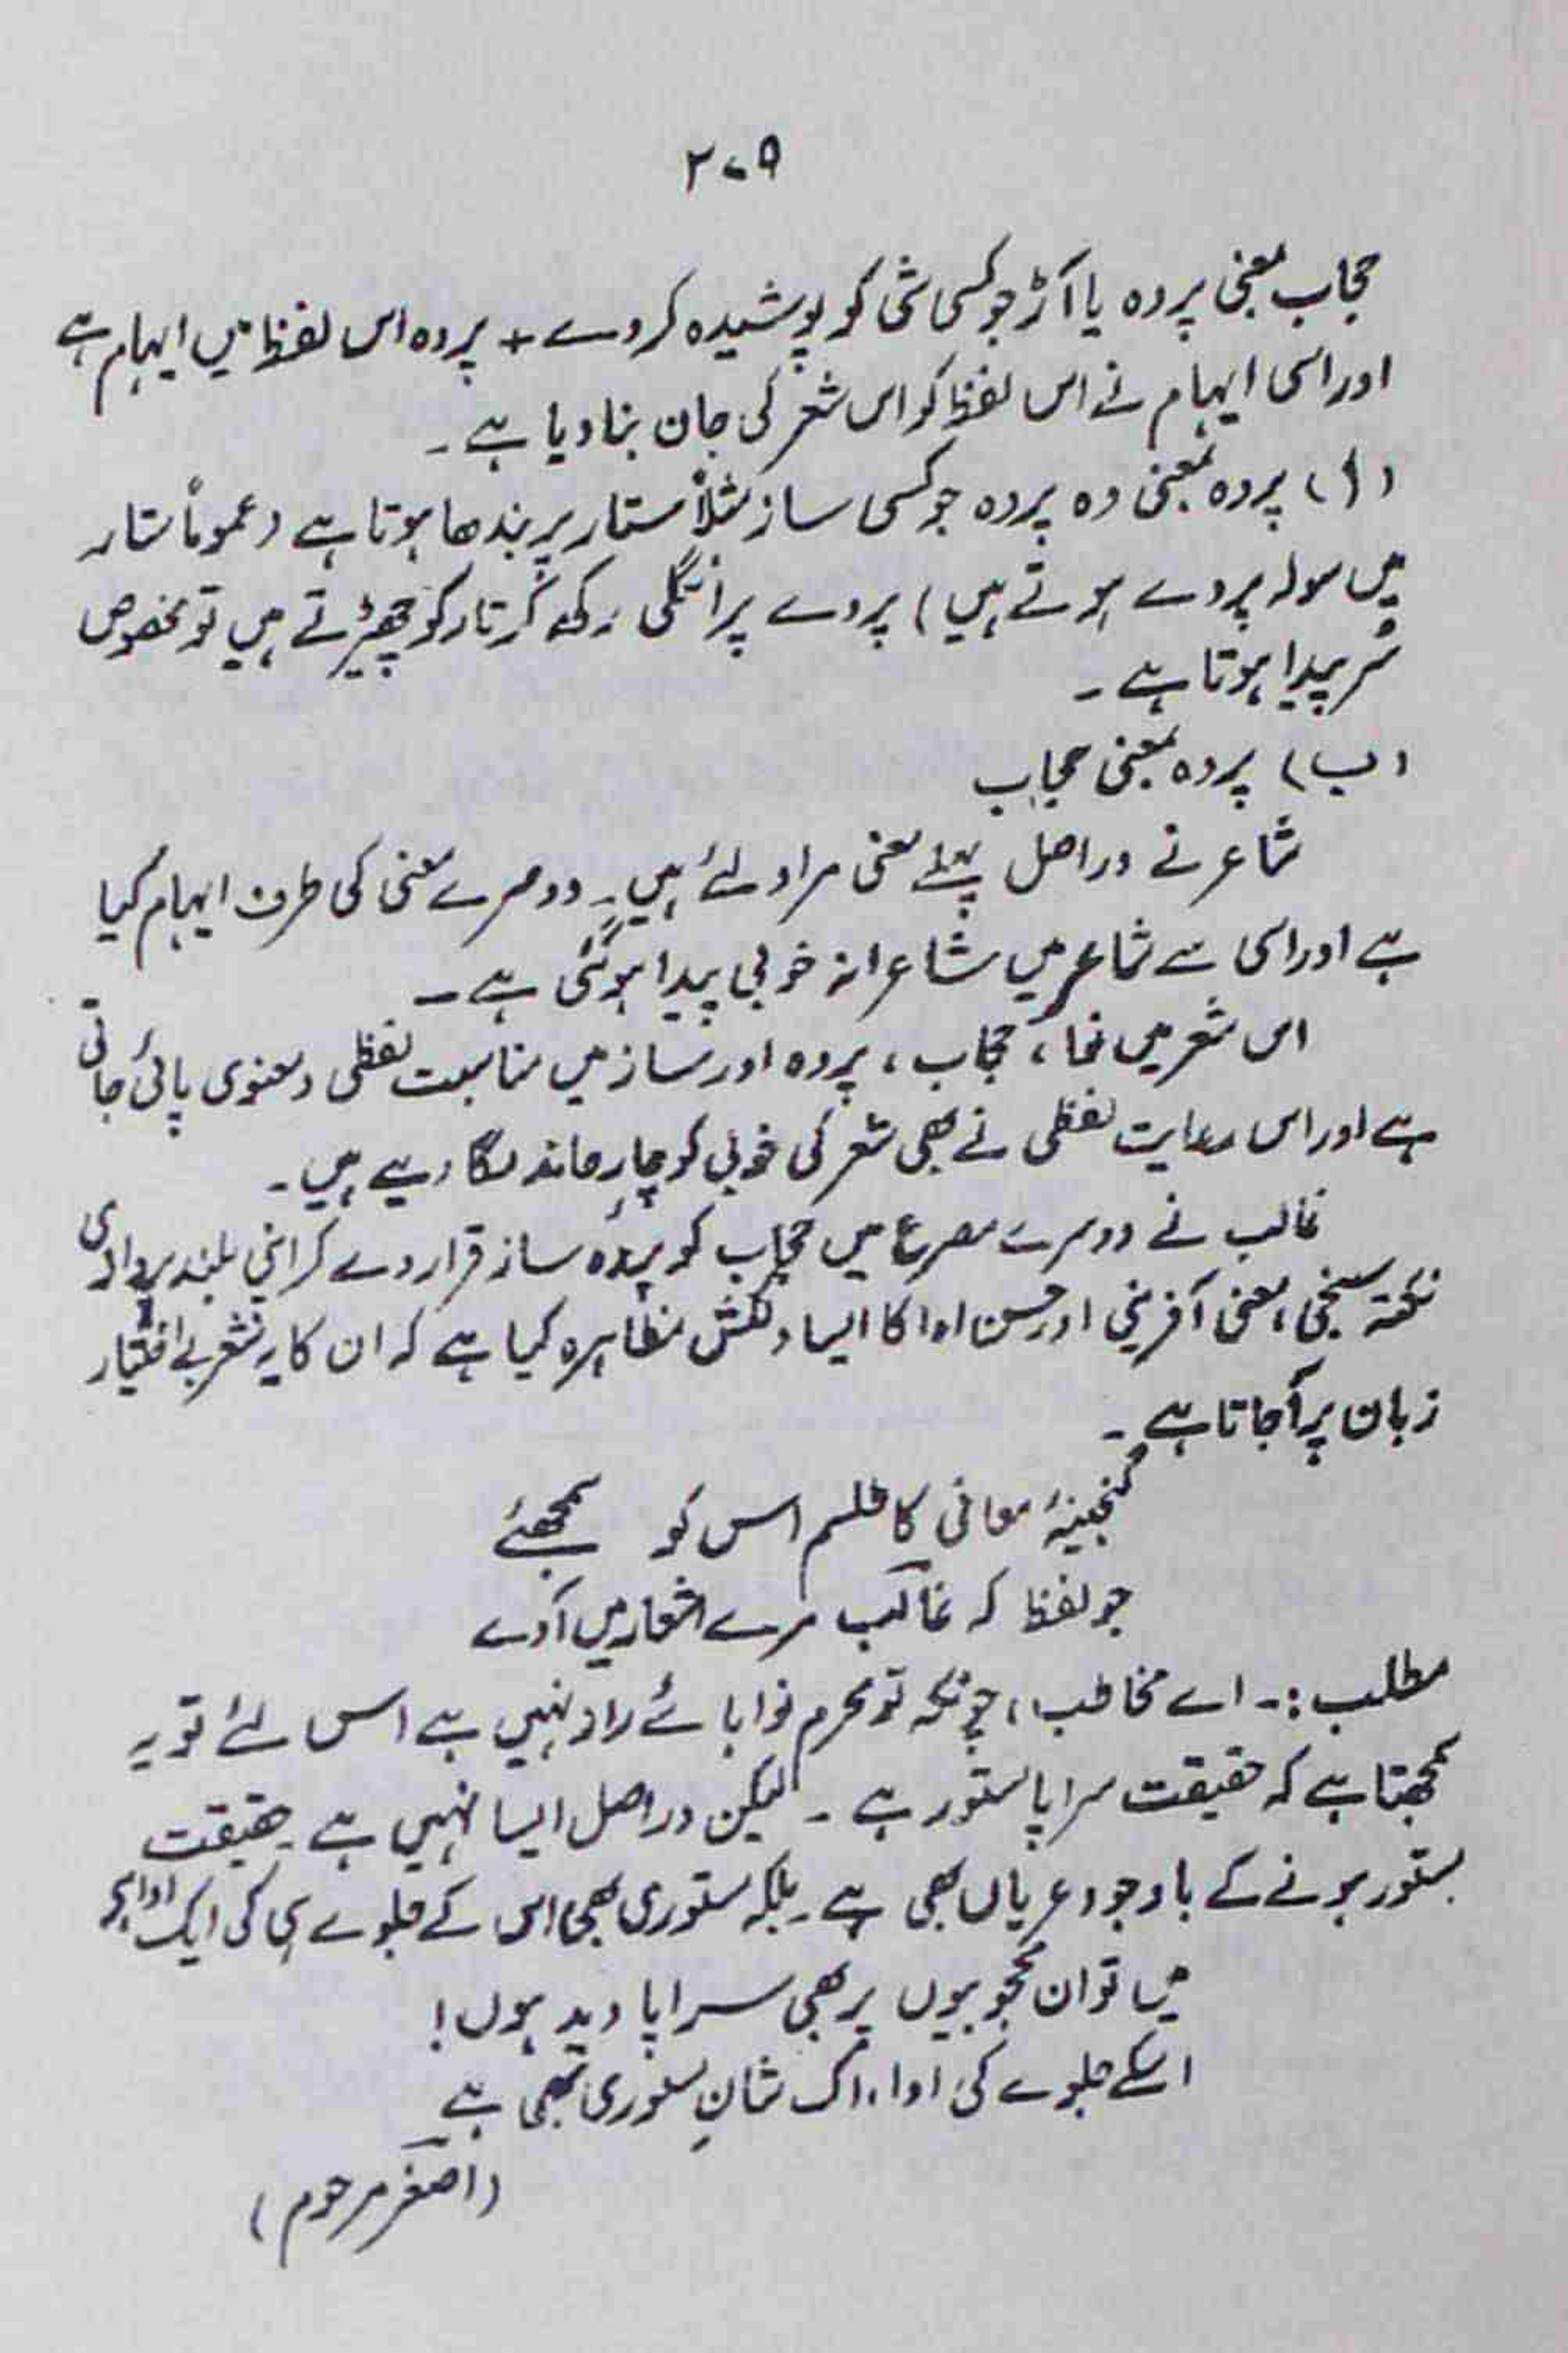 ۲۰۵
حجاب بمعنی پردہ یا آڑ جو کسی شئ کو پوشیدہ کر دے + پردہ اس لفظ میں ایہام ہے
اور اسی ایہام نے اس لفظ کو اس شعر کی جان بنا دیا ہے ۔
(ا) پردہ بمعنی وہ پردہ جو کسی ساز مثلاً ستار پر بندھا ہوتا ہے (عموماً ستار
میں سولہ پردے ہوتے ہیں) پردے پر انگلی رکھ کر تار کو چھیڑتے ہیں تو مخصوص
سُر پیدا ہوتا ہے ۔
(ب) پردہ بمعنی حجاب
شاعر نے دراصل پہلے معنی مراد لئے ہیں ۔ دوسرے معنی کی طرف ایہام کیا
ہے اور اسی سے شاعر میں شاعرانہ خوبی پیدا ہوگئی ہے ۔
اس شعر میں نما ، حجاب ، پردہ اور ساز میں مناسبت لفظی و معنوی پائی جاتی
ہے اور اس رعایت لفظی نے بھی شعر کی خوبی کو چار چاند لگا دیے ہیں ۔
غالب نے دوسرے مصرع میں حجاب کو پردہ ساز قرار دے کر اپنی بلند پروازی
نکتہ سنجی ، معنی آفرینی اور حسن ادا کا ایسا دلکش مظاہرہ کیا ہے کہ ان کا یہ شعر بے اختیار
زبان پر آجاتا ہے ۔
گنجینۂ معانی کا طلسم اس کو سمجھئے
جو لفظ کہ غالب مرے اشعار میں آوے
مطلب :۔ اے مخاطب ، چونکہ تو محرم نوا ہائے راز نہیں ہے اس لئے تو یہ
سمجھتا ہے کہ حقیقت سراپا مستور ہے ۔ لیکن دراصل ایسا نہیں ہے ۔ حقیقت
مستور ہونے کے باوجود عریاں بھی ہے ۔ بلکہ مستوری بھی اس کے جلوے ہی کی ایک ادا ہے
میں تو ان محجوبیوں پر بھی سراپا دید ہوں !
اسکے جلوے کی ادا ، اک شانِ مستوری بھی ہے
(اصغر مرحوم)